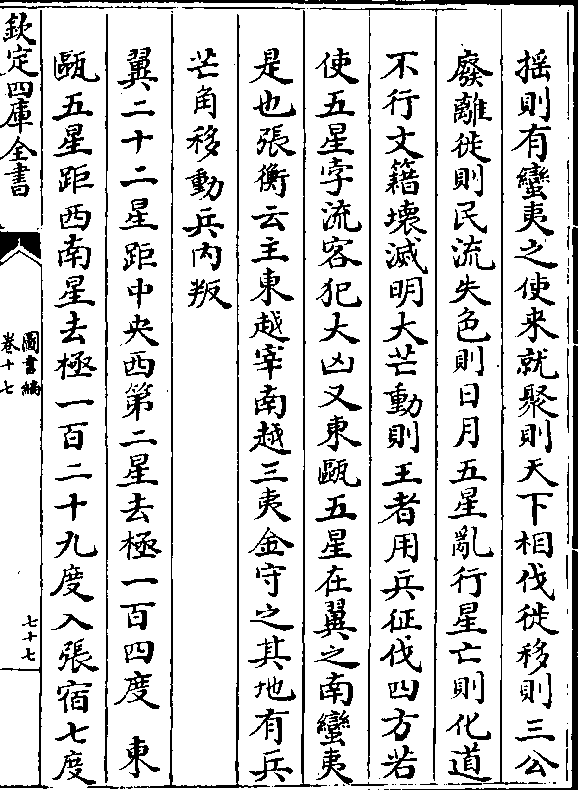 搖則有蠻夷之使来就聚則天下相伐徙移則三公
廢離徙則民流失色則日月五星亂行星亡則化道
不行文籍壊滅明大芒動則王者用兵征伐四方若
使五星孛流客犯大凶又東甌五星在翼之南蠻夷
是也張衡云主東越宰南越三夷金守之其地有兵
芒角移動兵内叛
翼二十二星距中央西第二星去極一百四度　東
甌五星距西南星去極一百二十九度入張宿七度
欽定四庫全書
圖書編
卷十七
七十七